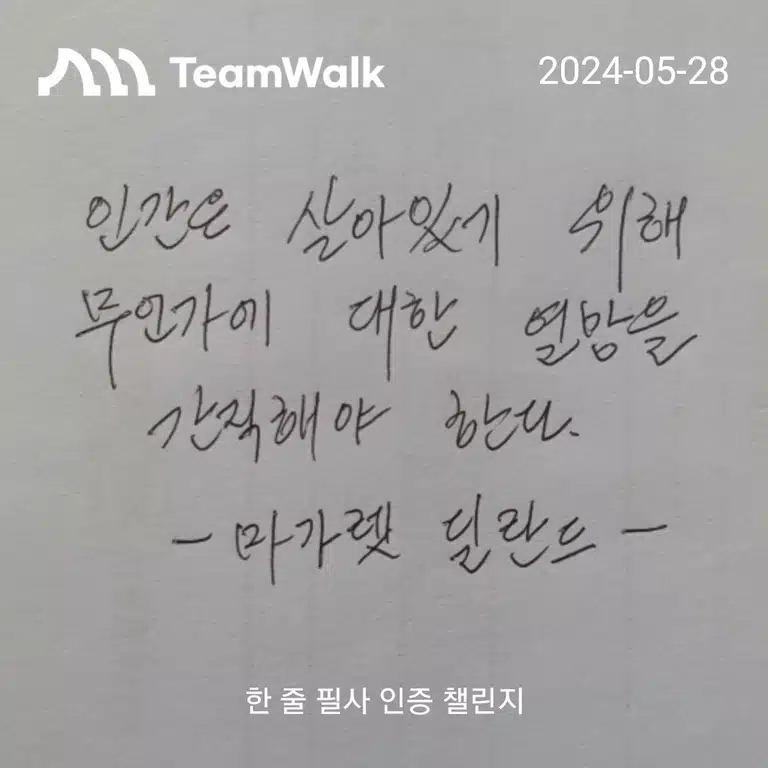 TeamWalk 2024-05-28
인간은 살아있기 위해
무언가에 대한 열망을
간직해야 한다.
- 마가렛 딜란드 -
한 줄 필사 인증 챌린지